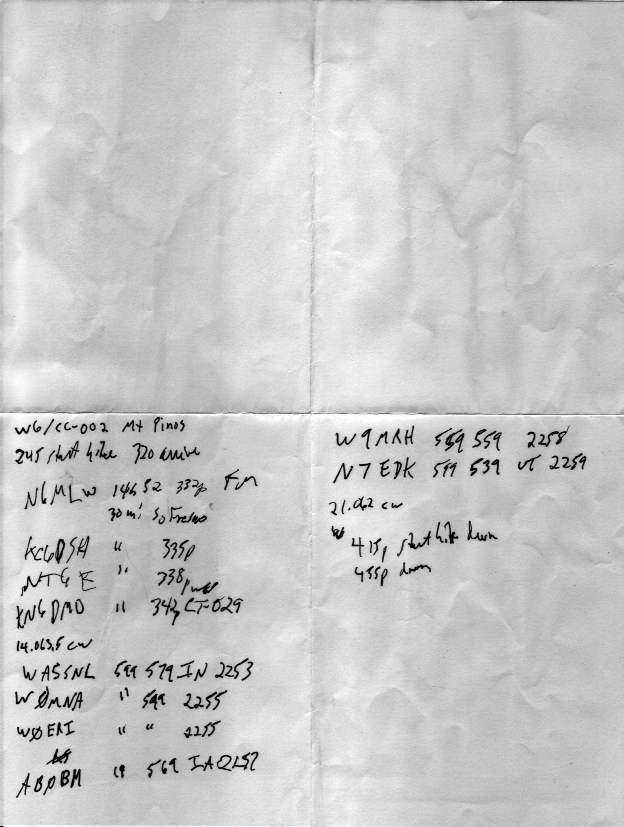 W6/CC-002 Mt Pinos
245 start hike 320 arrive
N6MLW 146 52 332p Fm
30 mi So Fresno
KC6DSH " 335p
NT6E " 338p
KN6DMO " 342p CT-029
14.063.5 cw
WA5SNL 599 579 IN 2253
WØMNA " 599 2255
WØERI " " 2255
ABØBM " 569 IA 2257
W9MRH 559 559 2258
N7EDK 599 539 UT 2259
21.062 cw
415p start hike down
455p down